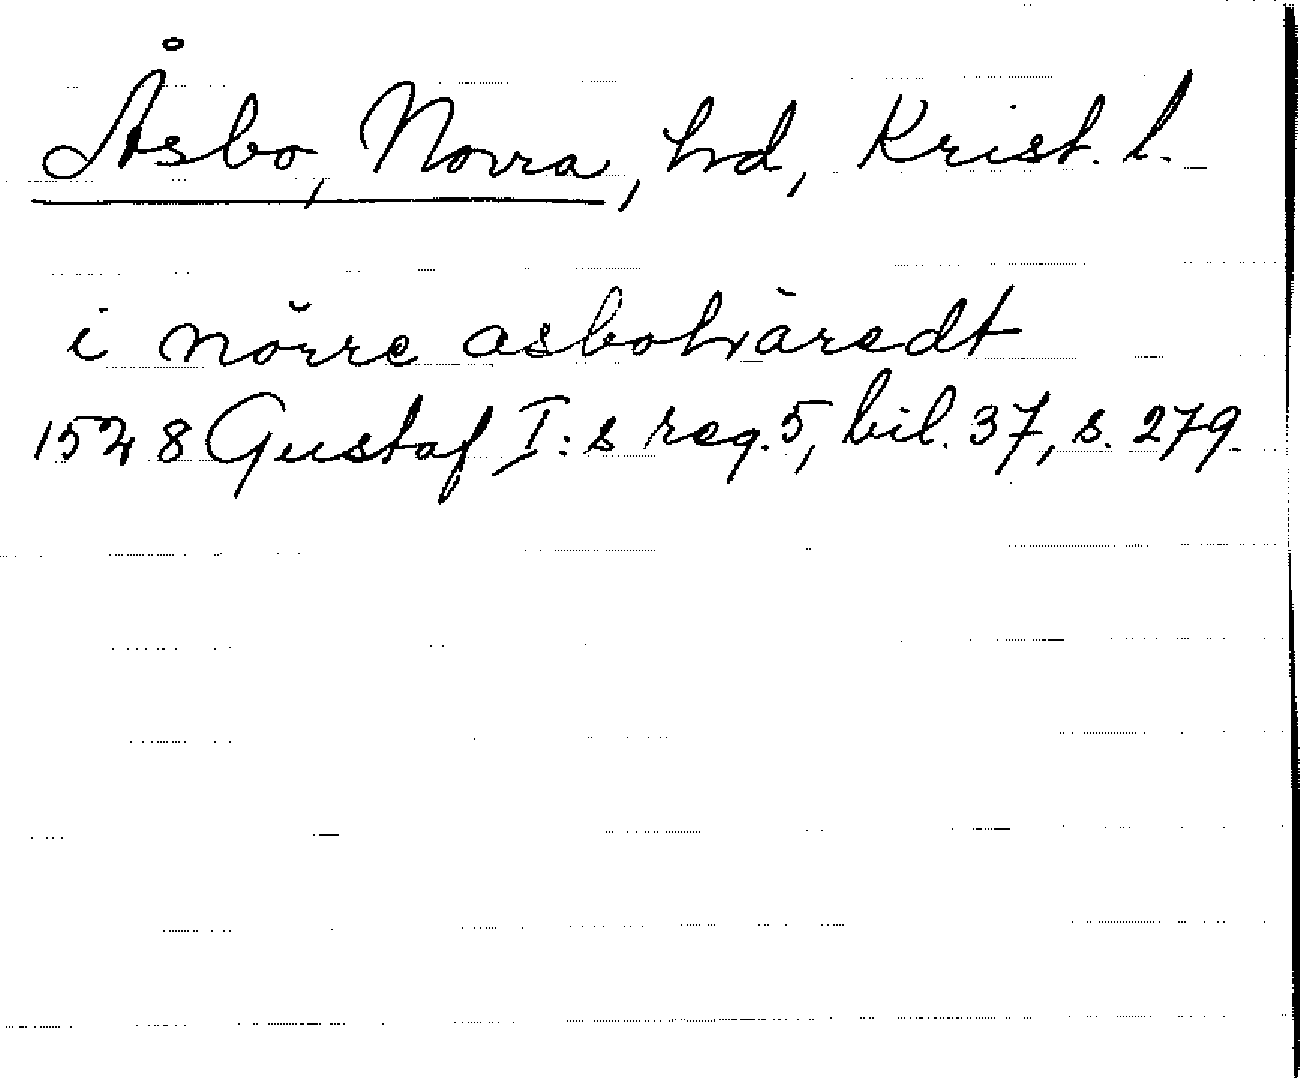 Åsbo, Norra, hd, Krist. l.
i nörre asbohäredt
1528 Gustaf I:s reg. 5, bil. 37, s. 279.